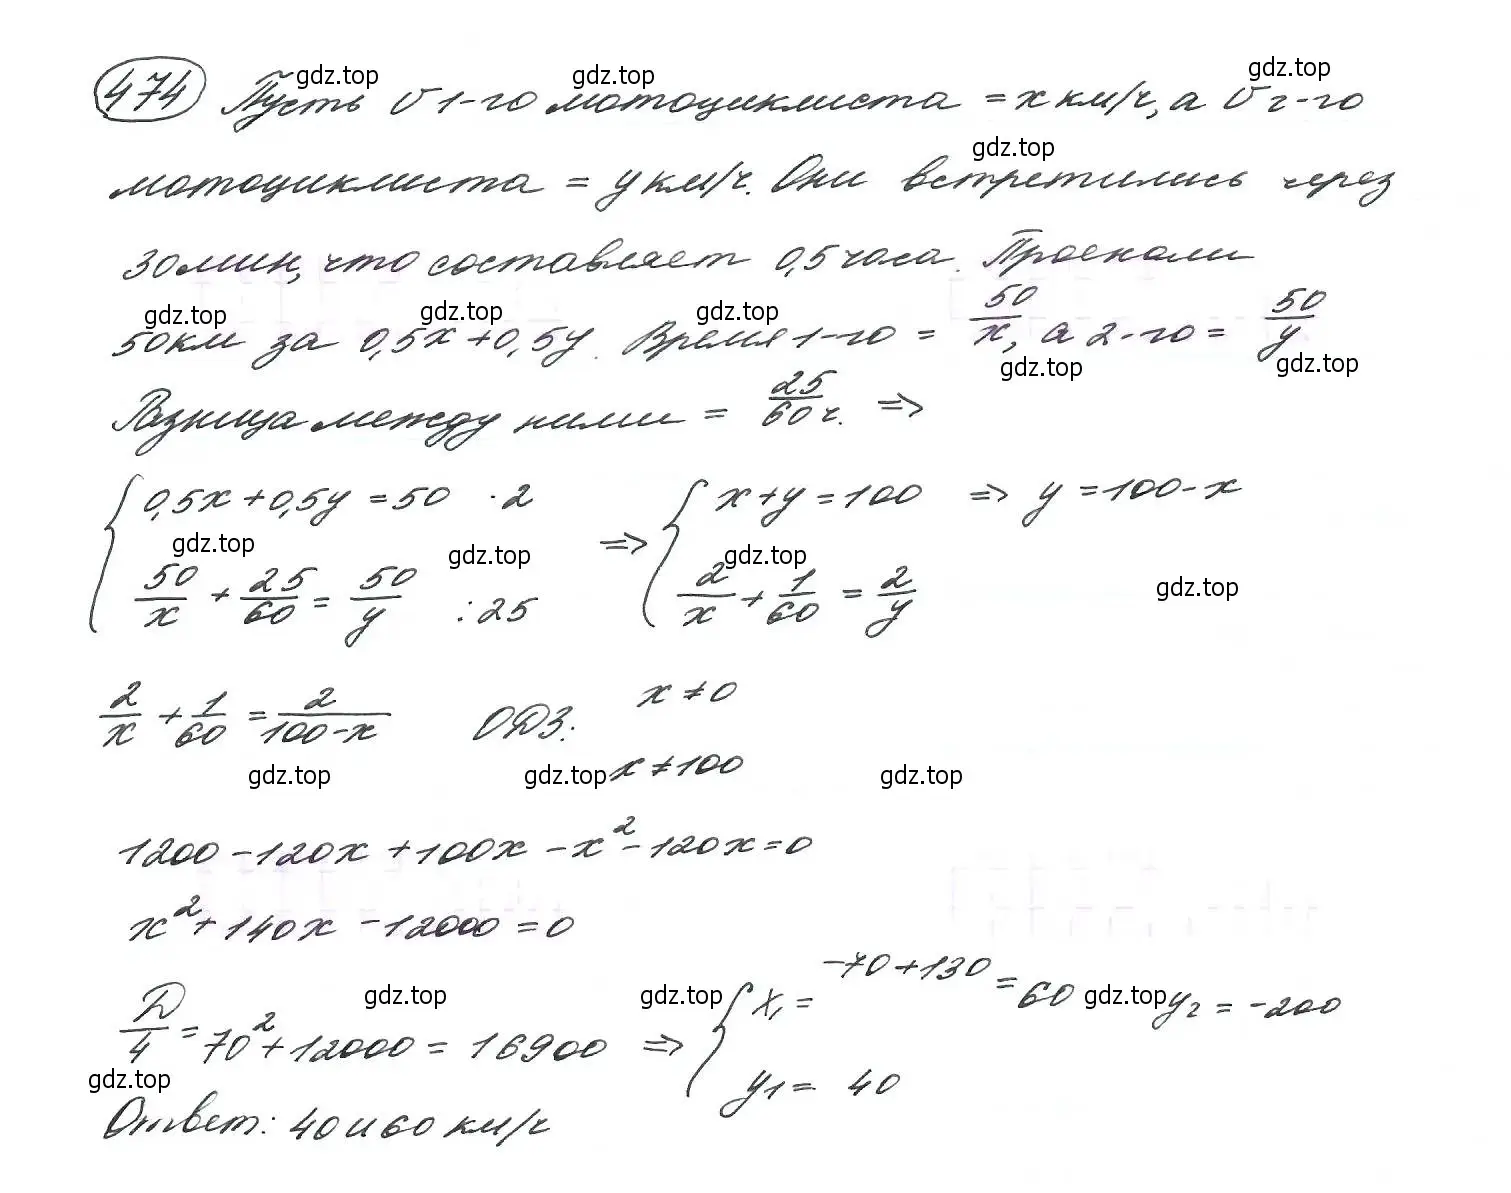 474 Пусть υ 1-го мотоциклиста = x км/ч, а υ 2-го
мотоциклиста = y км/ч. Они встретились через
30 мин, что составляет 0,5 часа. Проехали
50 км за 0,5x + 0,5y. Время 1-го = 50/x, а 2-го = 50/y
Разница между ними = 25/60 ч. =>
{ 0,5x + 0,5y = 50 · 2 => { x + y = 100 => y = 100 - x
50/x + 25/60 = 50/y : 25 2/x + 1/60 = 2/y
2/x + 1/60 = 2/(100-x) ОДЗ: x ≠ 0
x ≠ 100
1200 - 120x + 100x - x² - 120x = 0
x² + 140x - 12000 = 0
Д/4 = 70² + 12000 = 16900 => { x₁ = -70 + 130 = 60 y₂ = -200
y₁ = 40
Ответ: 40 и 60 км/ч
gdz.top gdz.top gdz.top
gdz.top
gdz.top gdz.top gdz.top
gdz.top gdz.top
gdz.top gdz.top gdz.top gdz.top
gdz.top gdz.top gdz.top
gdz.top gdz.top gdz.top
gdz.top